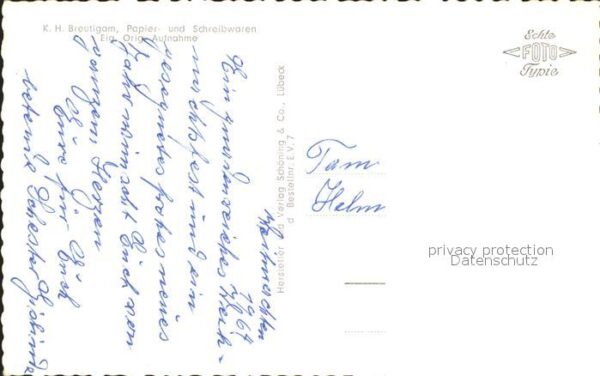 K. H. Breutigam, Papier- und Schreibwaren
Eig. Orig. Aufnahme
Weihnachten
1967
Ein gnadenreiches Weih-
nachtsfest und ein
gesegnetes frohes neues
Jahr wünscht Euch von
ganzem Herzen
Eure für Euch
betende Schwester
Hersteller und Verlag Schöning & Co., Lübeck
d Bestellnr. E.V. 7
Echte
FOTO
Typie
Fam
Helm
privacy protection
Datenschutz